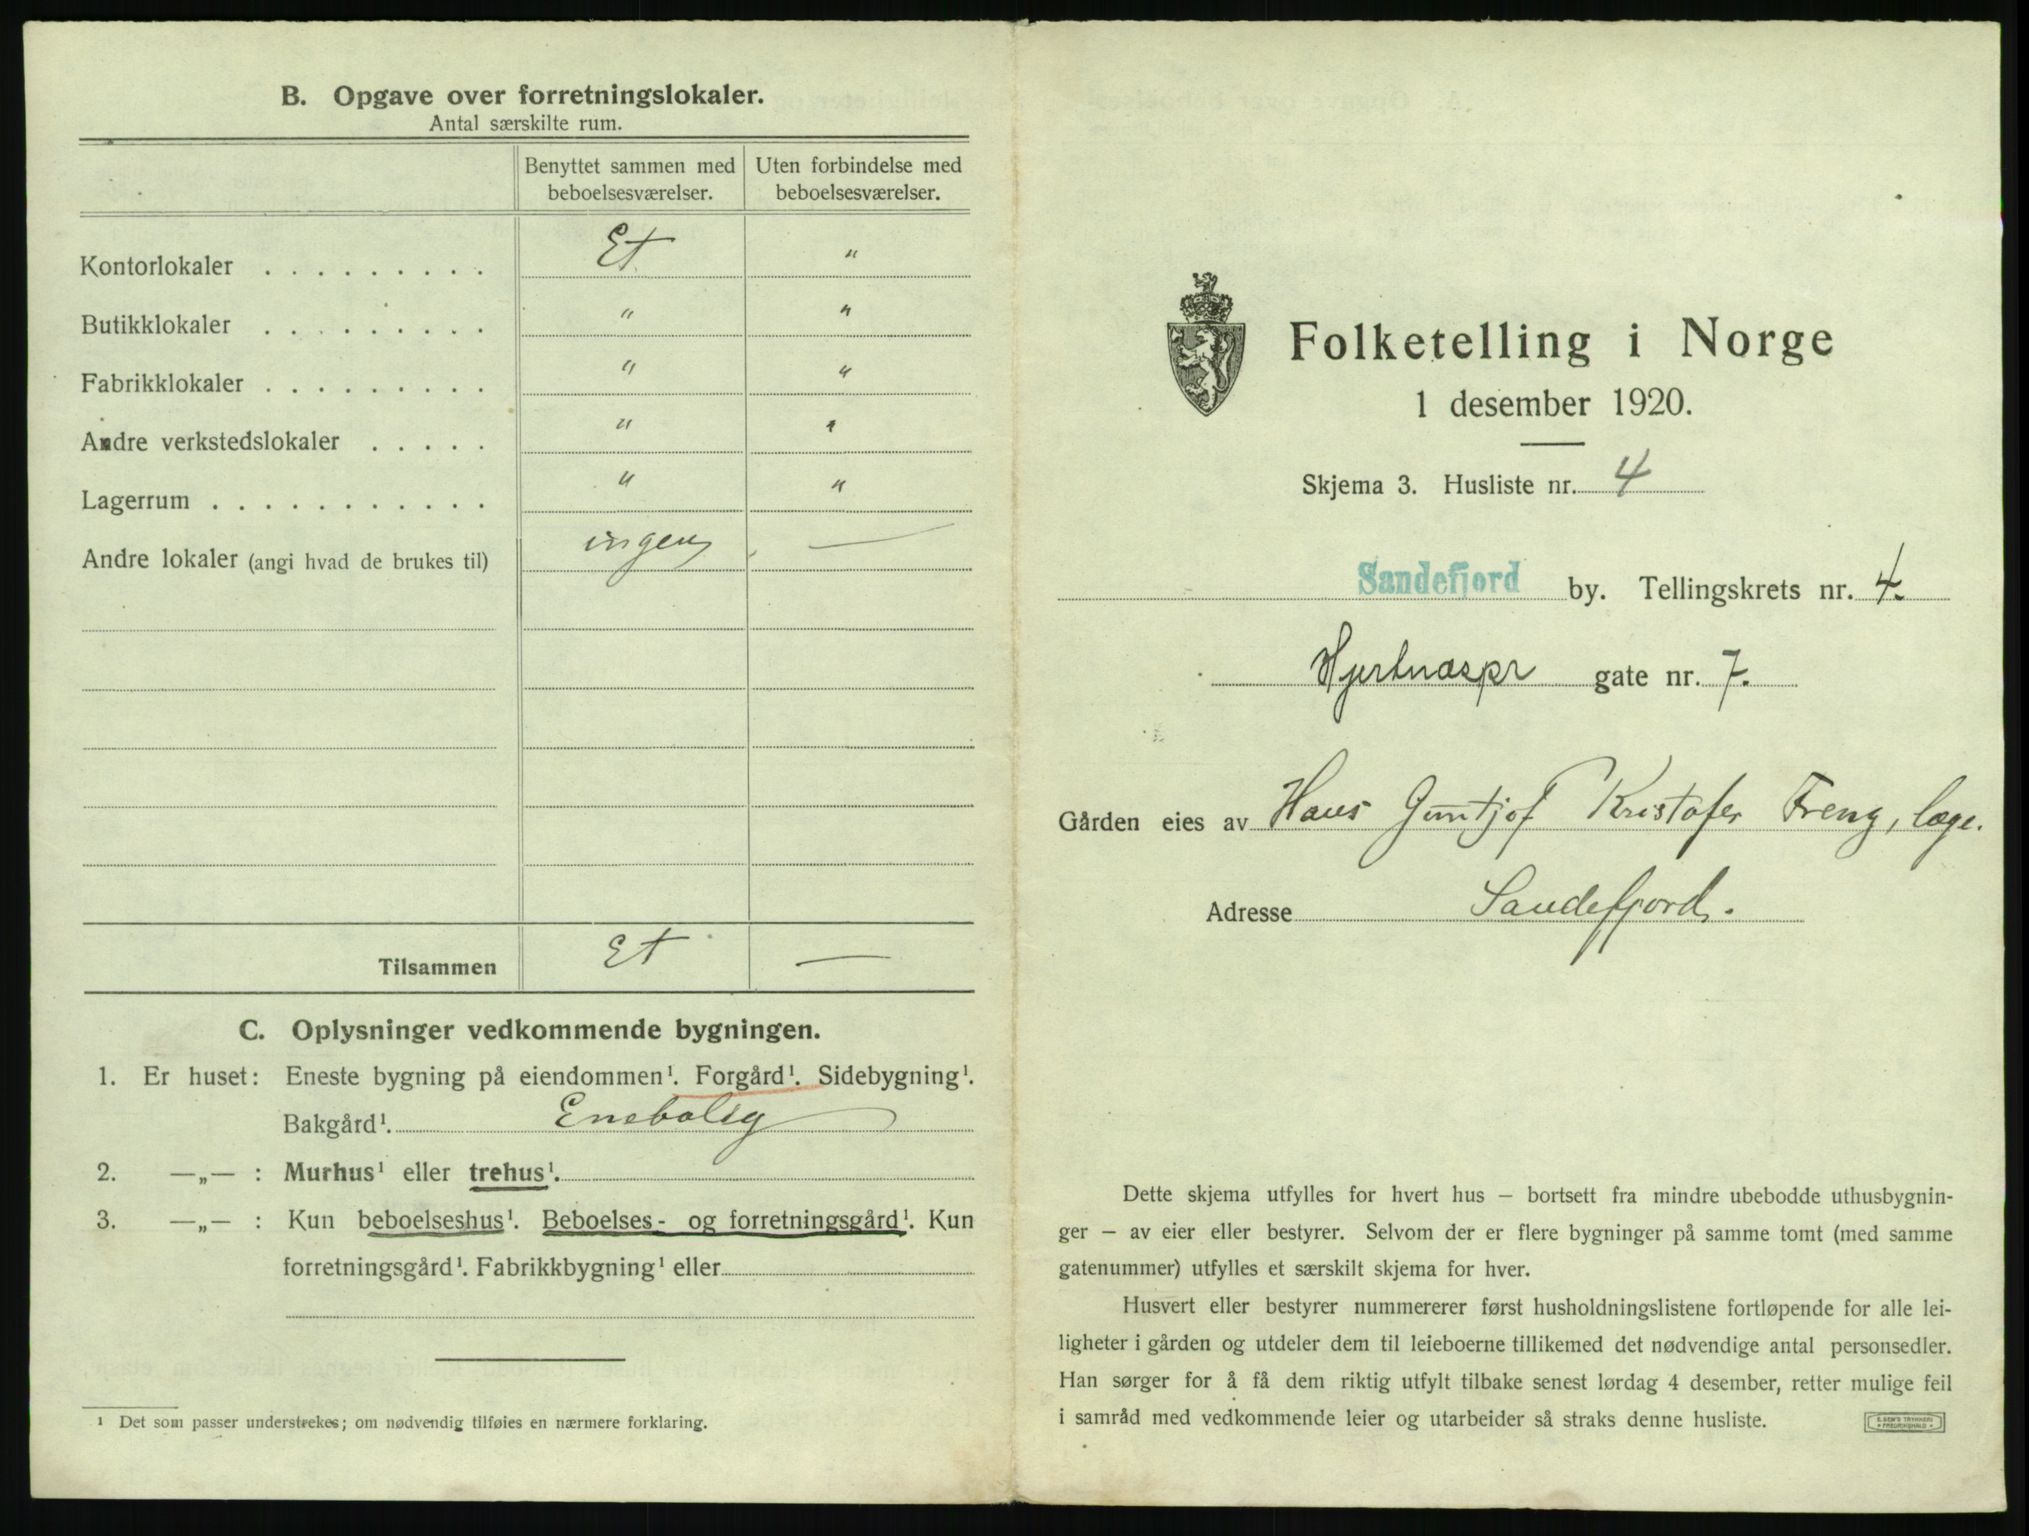 B. Opgave over forretningslokaler.
Antal særskilte rum.
Benyttet sammen med beboelsesværelser.
Uten forbindelse med beboelsesværelser.
Kontorlokaler . . . . . . . . . Et "
Butikklokaler . . . . . . . . . " "
Fabrikklokaler . . . . . . . . . " "
Andre verkstedslokaler . . . . . " "
Lagerrum . . . . . . . . . . . " "
Andre lokaler (angi hvad de brukes til) ingen —
Tilsammen Et —
C. Oplysninger vedkommende bygningen.
1. Er huset: Eneste bygning på eiendommen¹. Forgård¹. Sidebygning¹.
Bakgård¹. Enebolig
2. —„— : Murhus¹ eller trehus¹.
3. —„— : Kun beboelseshus¹. Beboelses- og forretningsgård¹. Kun
forretningsgård¹. Fabrikkbygning¹ eller
¹ Det som passer understrekes; om nødvendig tilføies en nærmere forklaring.
Folketelling i Norge
1 desember 1920.
Skjema 3. Husliste nr. 4
Sandefjord by. Tellingskrets nr. 4.
Hjertnæspr gate nr. 7.
Gården eies av Hans Kristofer Freng, læge.
Adresse Sandefjord.
Dette skjema utfylles for hvert hus — bortsett fra mindre ubebodde uthusbygnin-
ger — av eier eller bestyrer. Selvom der er flere bygninger på samme tomt (med samme
gatenummer) utfylles et særskilt skjema for hver.
Husvert eller bestyrer nummererer først husholdningslistene fortløpende for alle lei-
ligheter i gården og utdeler dem til leieboerne tillikemed det nødvendige antal personsedler.
Han sørger for å få dem riktig utfylt tilbake senest lørdag 4 desember, retter mulige feil
i samråd med vedkommende leier og utarbeider så straks denne husliste.
E. SEM'S TRYKKERI
FREDRIKSHALD